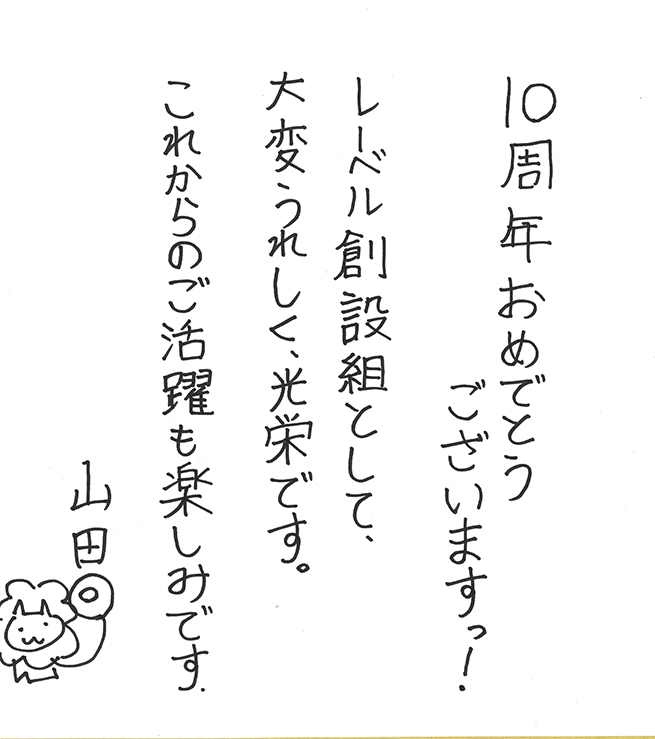 10周年おめでとう
ございますっ！
レーベル創設組として、
大変うれしく、光栄です。
これからのご活躍も楽しみです.
山田